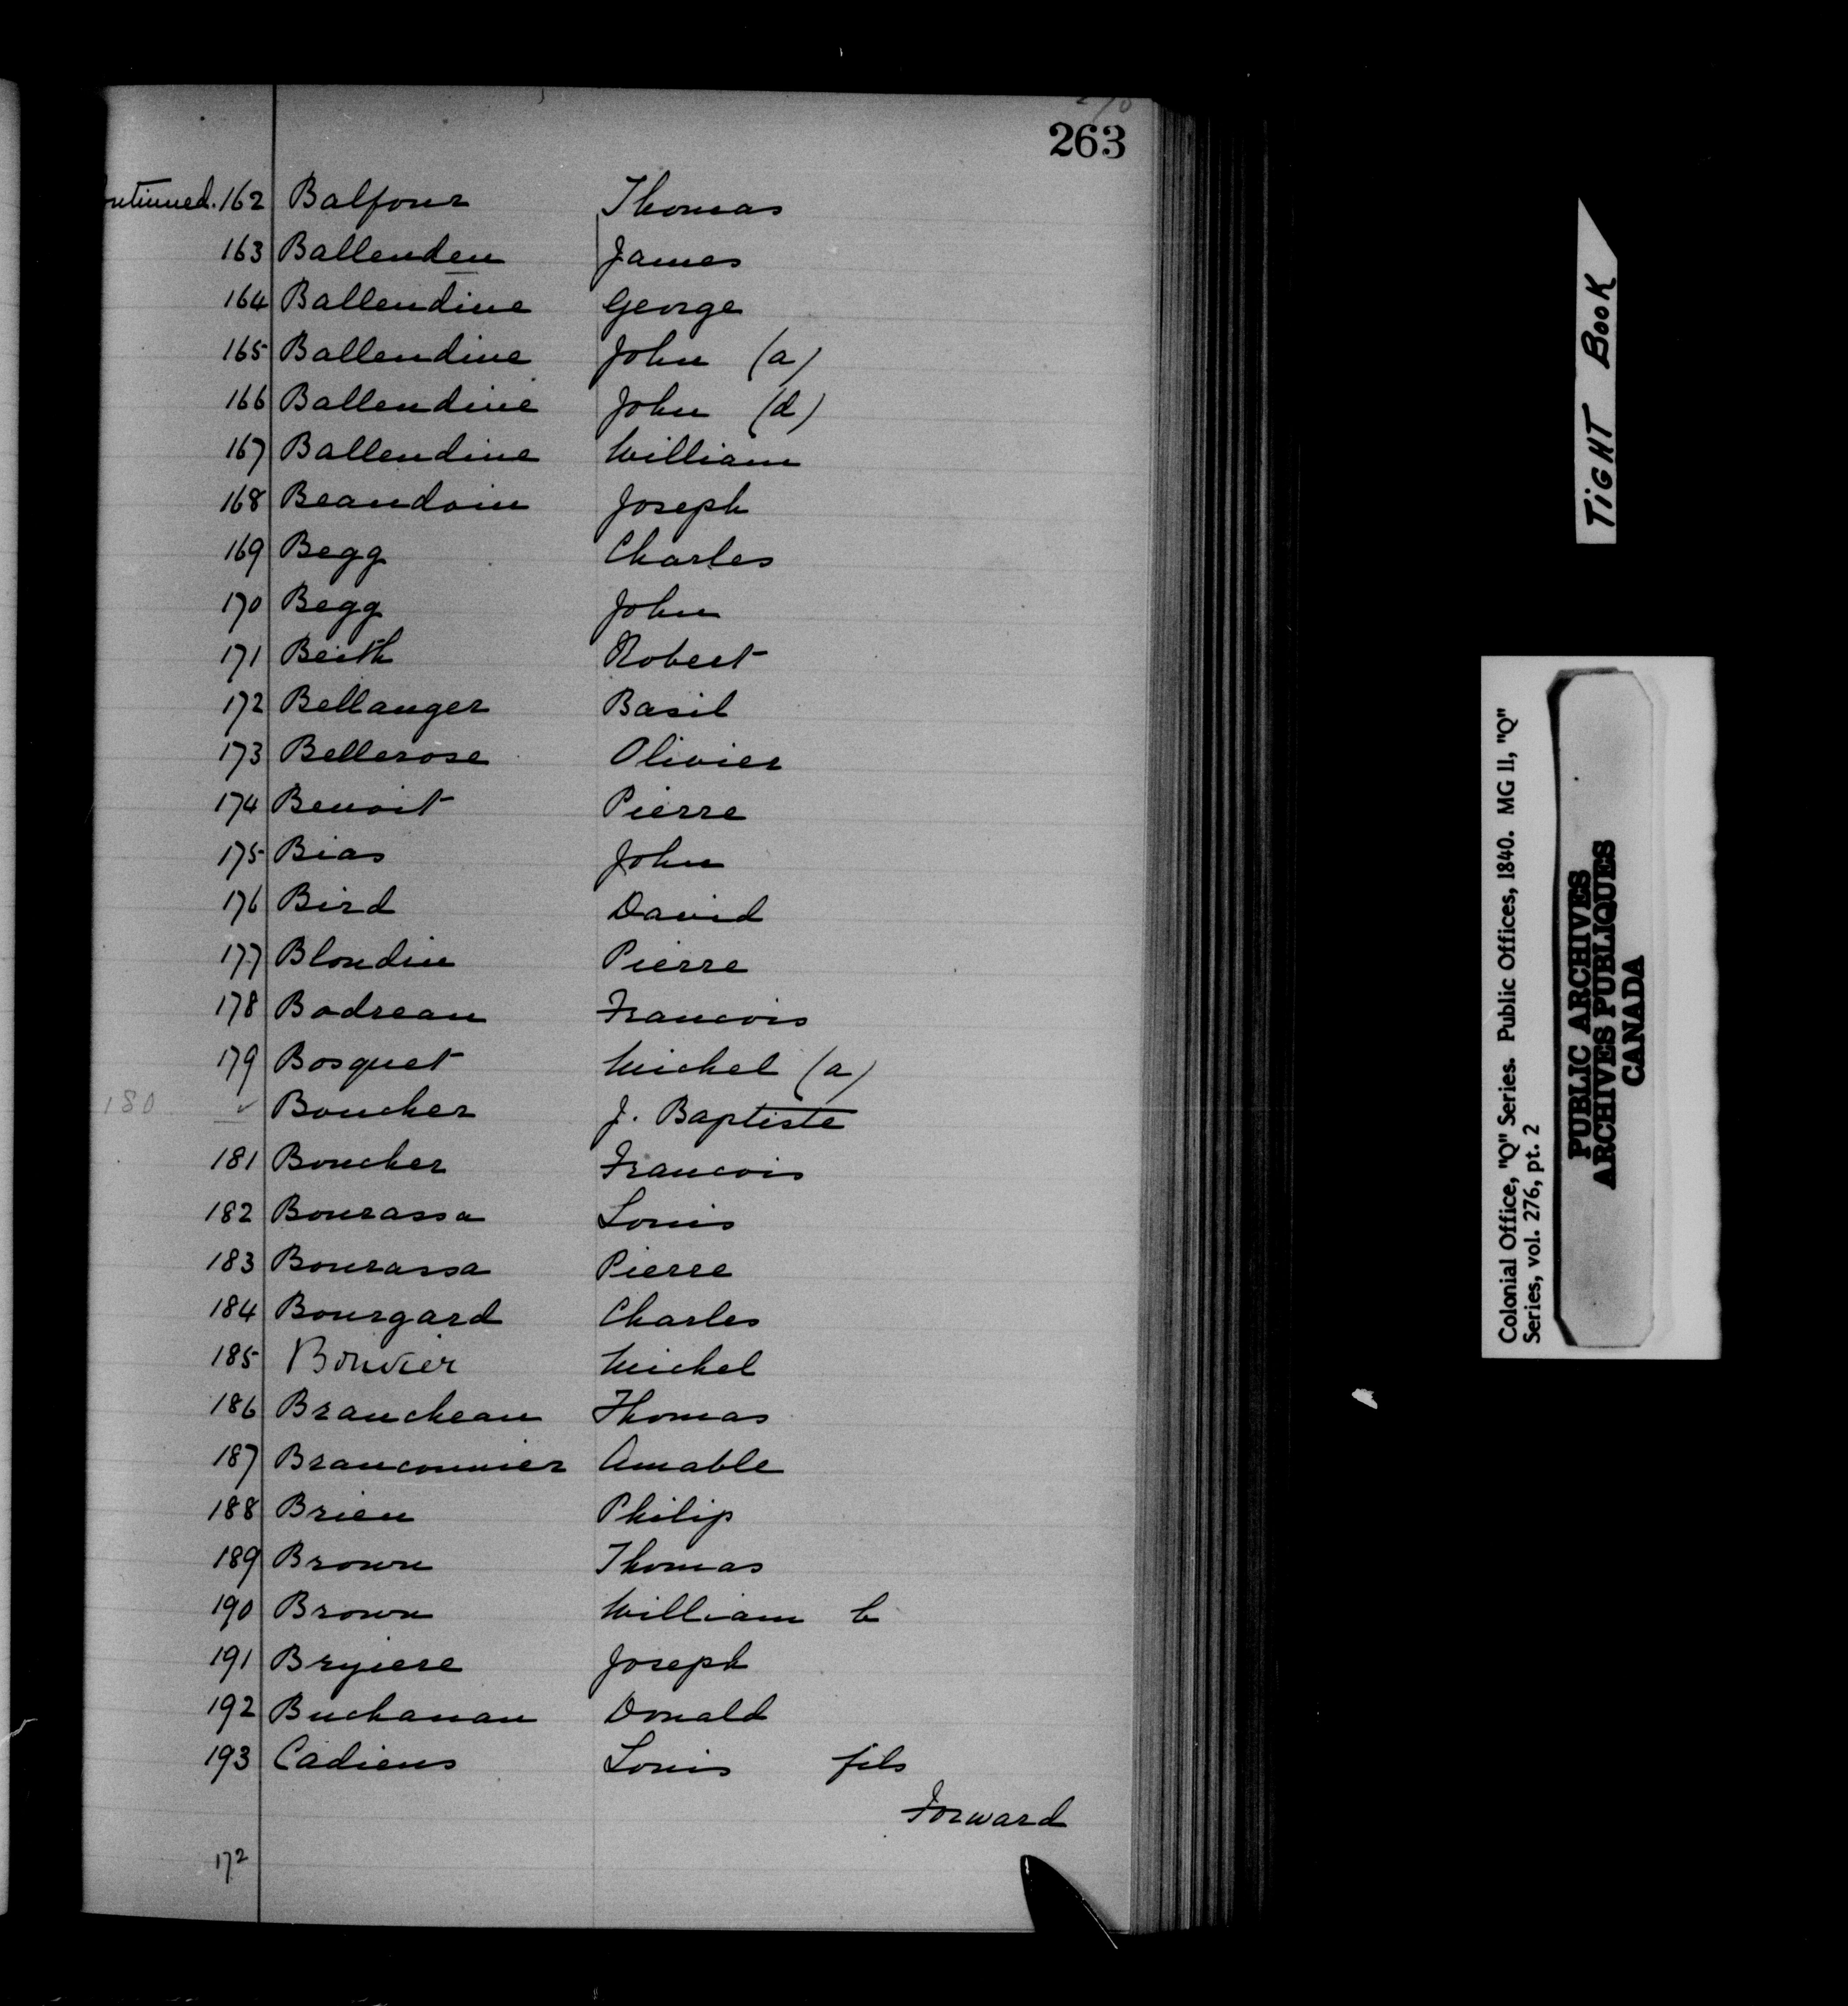 263
162 Balfour Thomas
163 Ballenden James
164 Ballendine George
165 Ballendine John (a)
166 Ballendine John (d)
167 Ballendine William
168 Beaudoin Joseph
169 Begg Charles
170 Begg John
171 Beith Robert
172 Bellanger Basil
173 Bellerose Olivier
174 Benoit Pierre
175 Bias John
176 Bird David
177 Blondin Pierre
178 Bodreau Francois
179 Bosquet Michel (a)
180 ✓ Boucher J. Baptiste
181 Boucher Francois
182 Bourassa Louis
183 Bourassa Pierre
184 Bourgard Charles
185 Bouvier Michel
186 Brancheau Thomas
187 Branconnier Amable
188 Brien Philip
189 Brown Thomas
190 Brown William b
191 Bryiere Joseph
192 Buchanan Donald
193 Cadieus Louis fils
Forward
172
TIGHT BOOK
Colonial Office, "Q" Series. Public Offices, 1840. MG 11, "Q"
Series, vol. 276, pt. 2
PUBLIC ARCHIVES
ARCHIVES PUBLIQUES
CANADA